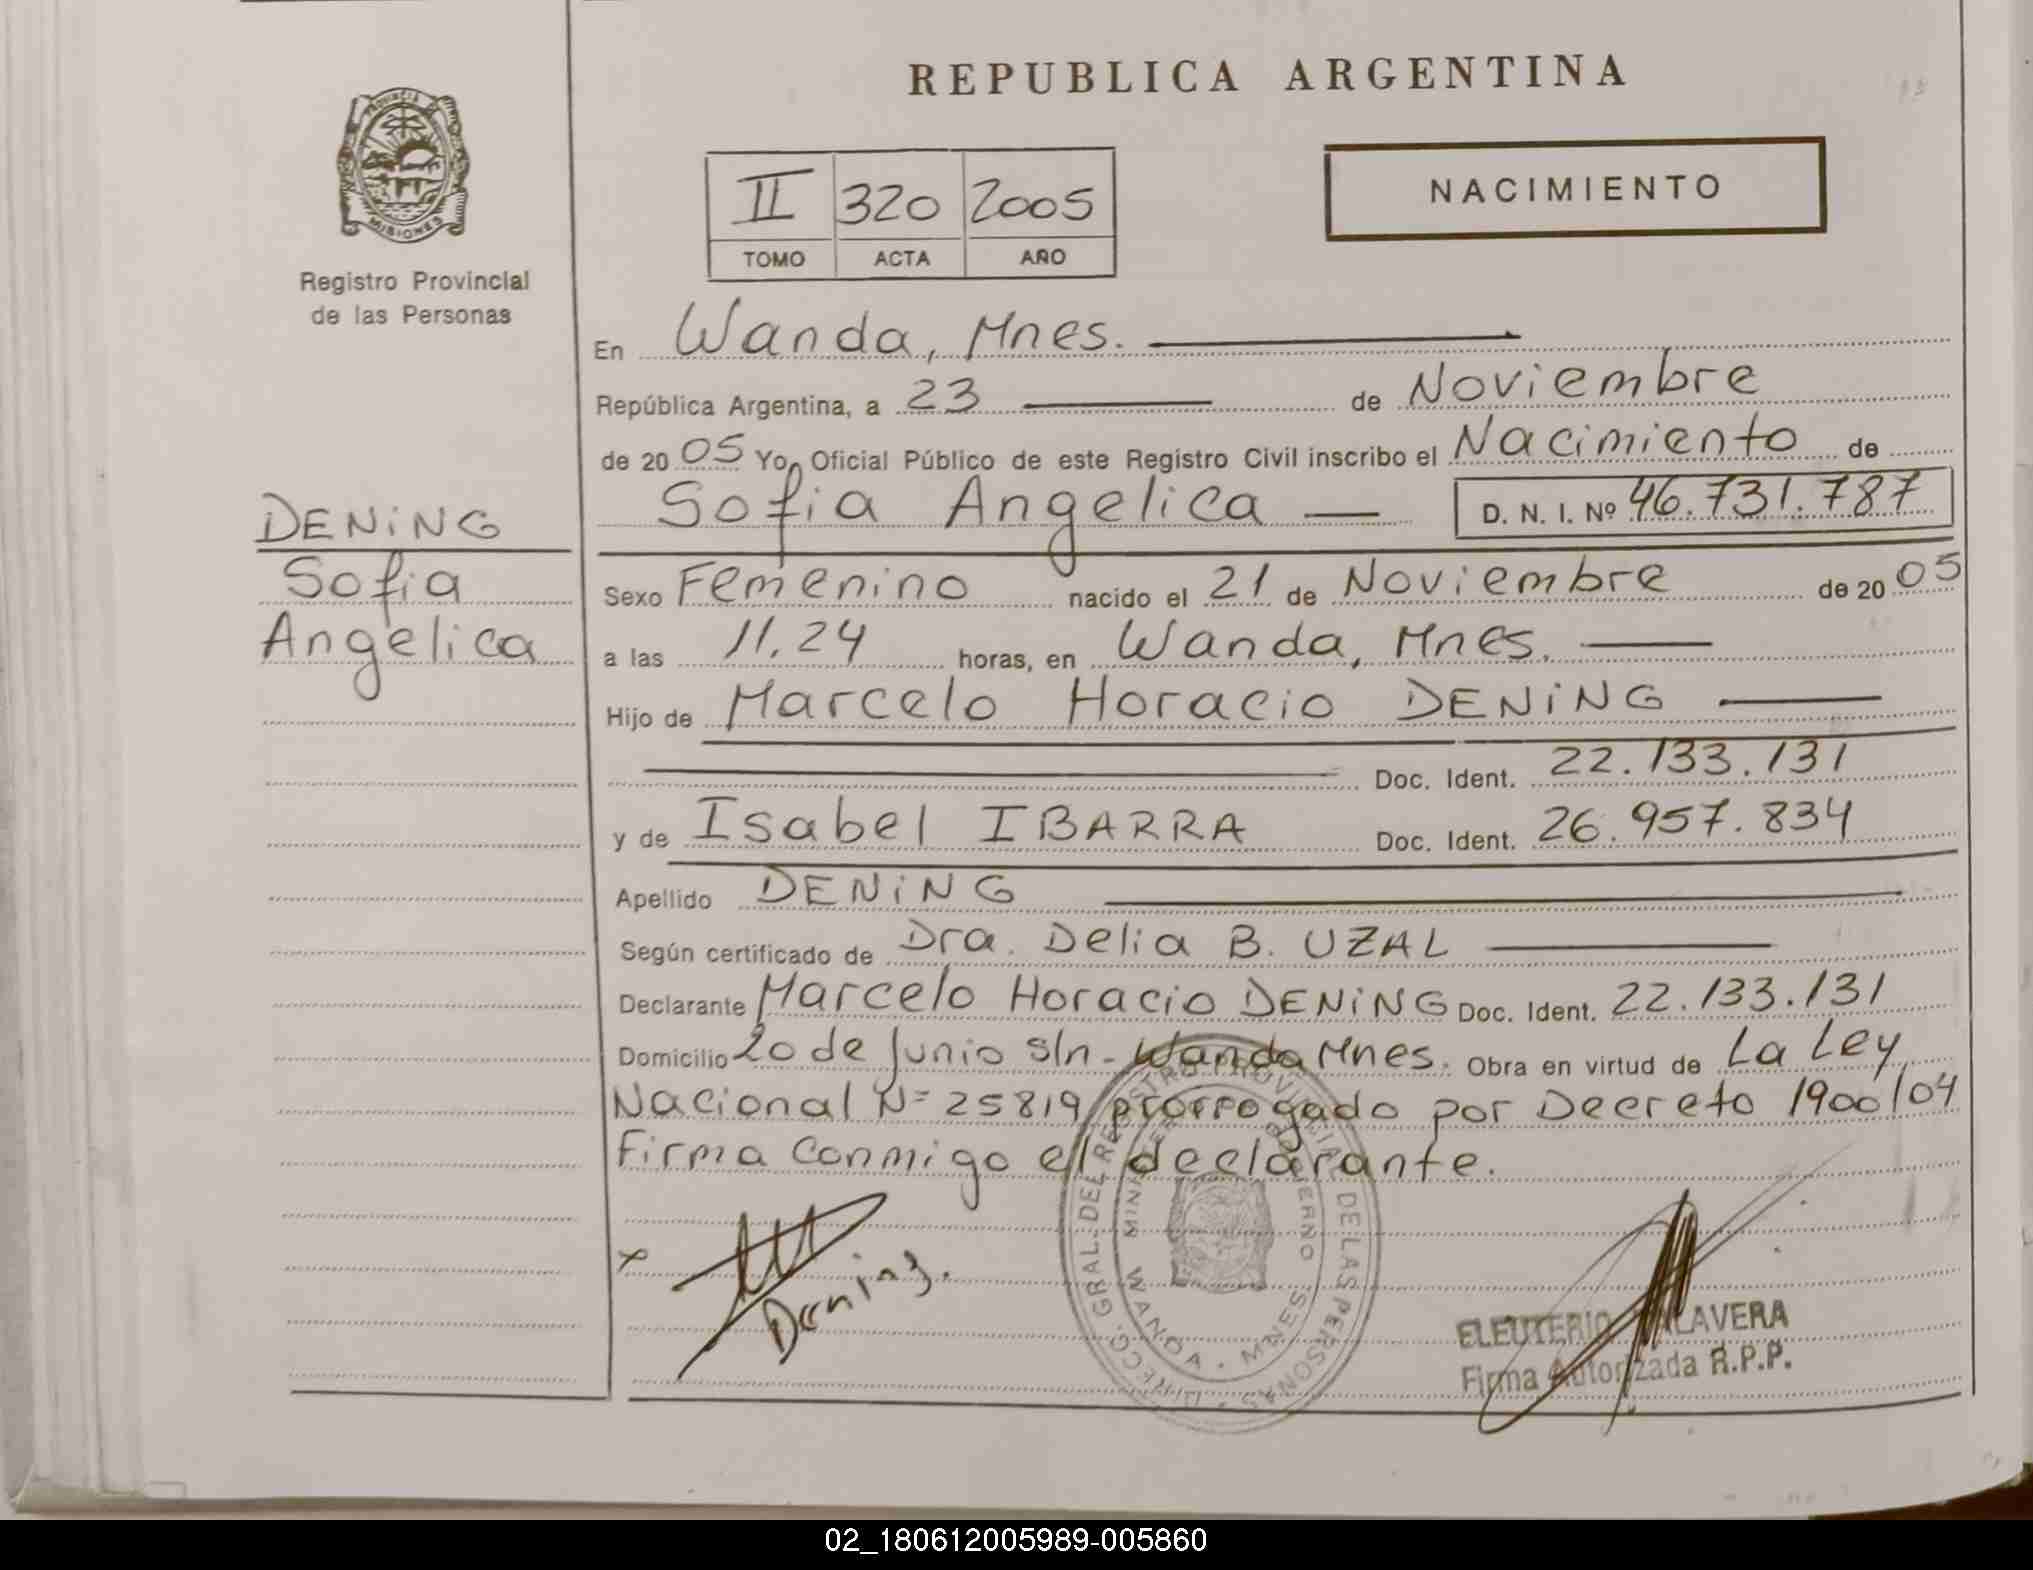 REPUBLICA ARGENTINA
PROVINCIA DE MISIONES
Registro Provincial
de las Personas
II 320 2005
TOMO ACTA AÑO
NACIMIENTO
En Wanda, Mnes.
República Argentina, a 23 de Noviembre
de 2005 Yo, Oficial Público de este Registro Civil inscribo el Nacimiento de
Sofia Angelica D. N. I. Nº 46.731.787
DENING
Sofia
Angelica
Sexo Femenino nacido el 21 de Noviembre de 2005
a las 11.24 horas, en Wanda, Mnes.
Hijo de Marcelo Horacio DENING
Doc. Ident. 22.133.131
y de Isabel IBARRA Doc. Ident. 26.957.834
Apellido DENING
Según certificado de Dra. Delia B. UZAL
Declarante Marcelo Horacio DENING Doc. Ident. 22.133.131
Domicilio 20 de Junio s/n - Wanda Mnes. Obra en virtud de La Ley
Nacional Nº 25819 prorrogado por Decreto 1900/04
Firma conmigo el declarante.
x Dening.
DIRECC. GRAL. DEL REGISTRO PROVINCIAL DE LAS PERSONAS
GOBIERNO
WANDA - MNES.
ELEUTERIO TALAVERA
Firma Autorizada R.P.P.
02_180612005989-005860